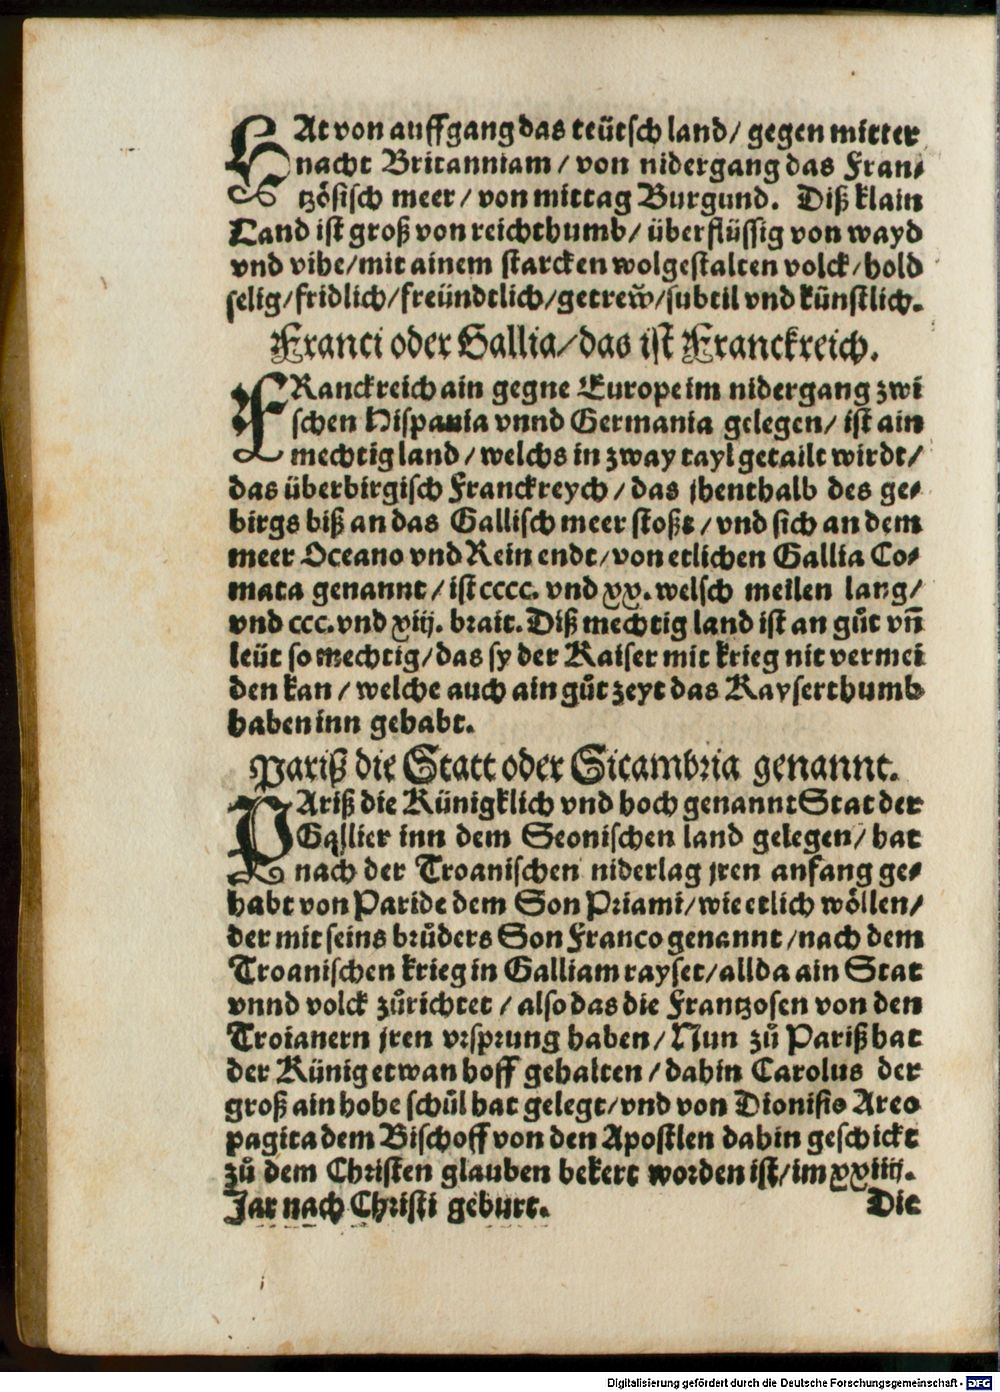 HAt von auffgang das teütsch land/ gegen mitter
nacht Britanniam/ von nidergang das Fran⸗
tzösisch meer/ von mittag Burgund. Diß klain
Land ist groß von reichthumb/ überflüssig von wayd
vnd vihe/mit ainem starcken wolgestalten volck/hold
selig/fridlich/freündtlich/getrew̃/subtil vnd künstlich.
Franci oder Gallia/das ist Franckreich.
FRanckreich ain gegne Europe im nidergang zwi
schen Hispania vnnd Germania gelegen/ ist ain
mechtig land/welchs in zway tayl getailt wirdt/
das überbirgisch Franckreych/das jhenthalb des ge⸗
birgs biß an das Gallisch meer stoßt/vnd sich an dem
meer Oceano vnd Rein endt/von etlichen Gallia Co⸗
mata genannt/ist cccc. vnd xx. welsch meilen lang/
vnd ccc. vnd xiij. brait. Diß mechtig land ist an gůt vñ
leüt so mechtig/das sy der Kaiser mit krieg nit vermei
den kan/welche auch ain gůt zeyt das Kayserthumb
haben inn gehabt.
Pariß die Statt oder Sicambria genannt.
PAriß die Künigklich vnd hoch genannt Stat der
Gallier inn dem Seonischen land gelegen/ hat
nach der Troanischen niderlag jren anfang ge⸗
habt von Paride dem Son Priami/wie etlich wöllen/
der mit seins brůders Son Franco genannt/nach dem
Troanischen krieg in Galliam rayset/allda ain Stat
vnnd volck zůrichtet/also das die Frantzosen von den
Troianern jren vrsprung haben/Nun zů Pariß hat
der Künig etwan hoff gehalten/dahin Carolus der
groß ain hohe schůl hat gelegt/vnd von Dionisio Areo
pagita dem Bischoff von den Apostlen dahin geschickt
zů dem Christen glauben bekert worden ist/im xxiiij.
Jar nach Christi geburt. Die
Digitalisierung gefördert durch die Deutsche Forschungsgemeinschaft - DFG